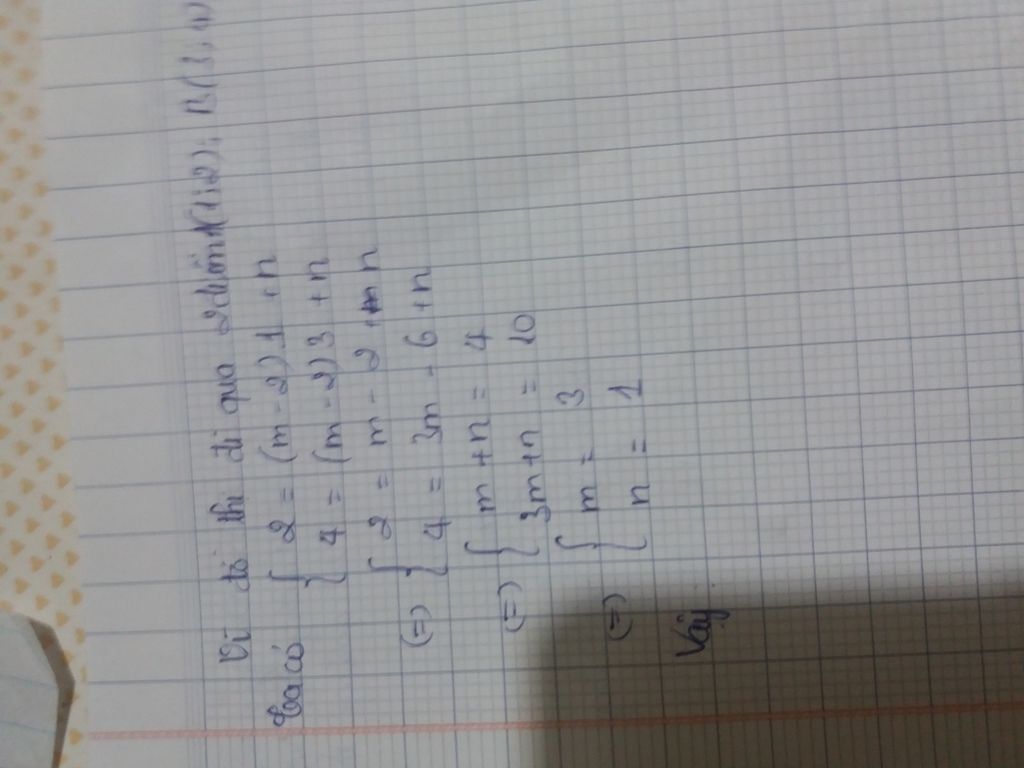 Vì đồ thị đi qua 2 điểm A(1;2);
ta có { 2 = (m - 2)1 + n
4 = (m - 2)3 + n
(=) { 2 = m - 2 + n
4 = 3m - 6 + n
(=) { m + n = 4
3m + n = 10
(=) { m = 3
n = 1
Vậy